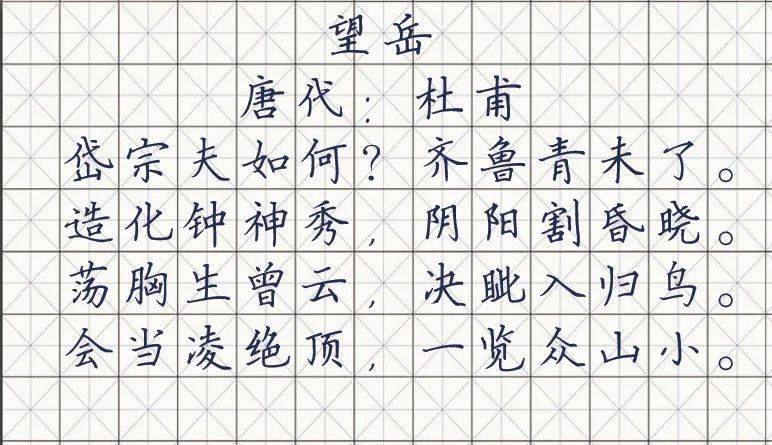 望岳
唐代：杜甫
岱宗夫如何？齐鲁青未了。
造化钟神秀，阴阳割昏晓。
荡胸生曾云，决眦入归鸟。
会当凌绝顶，一览众山小。